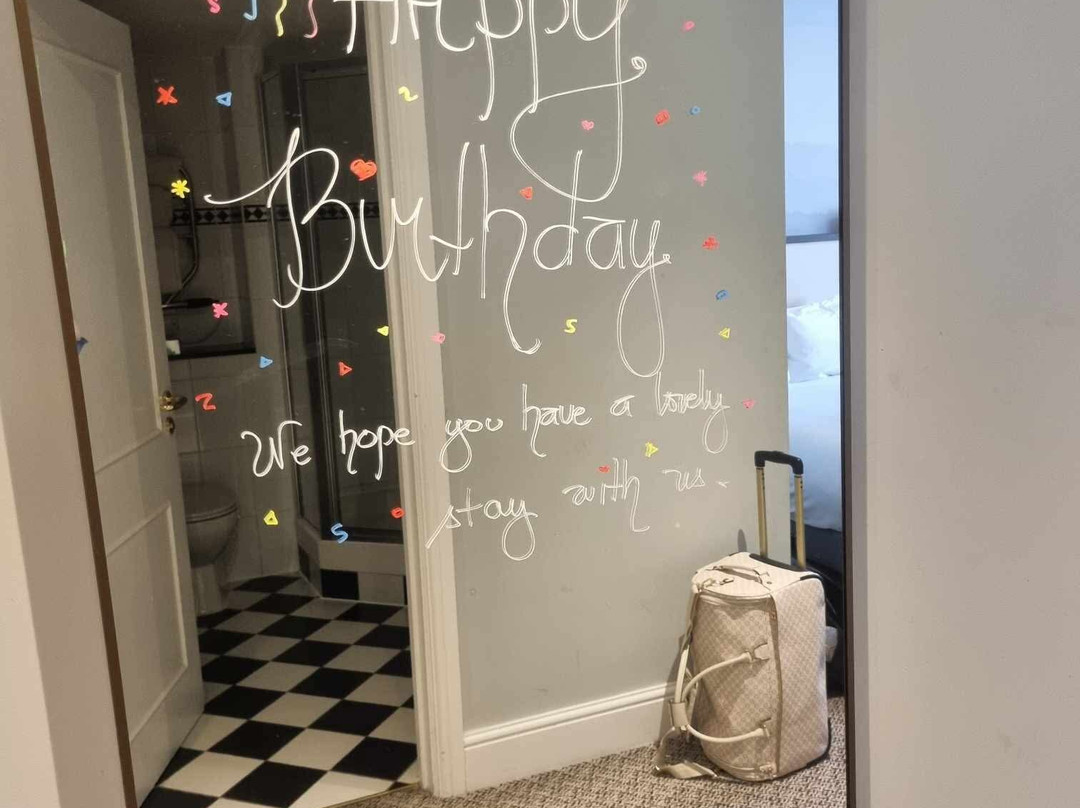 Happy
Birthday
We hope you have a lovely
stay with us.